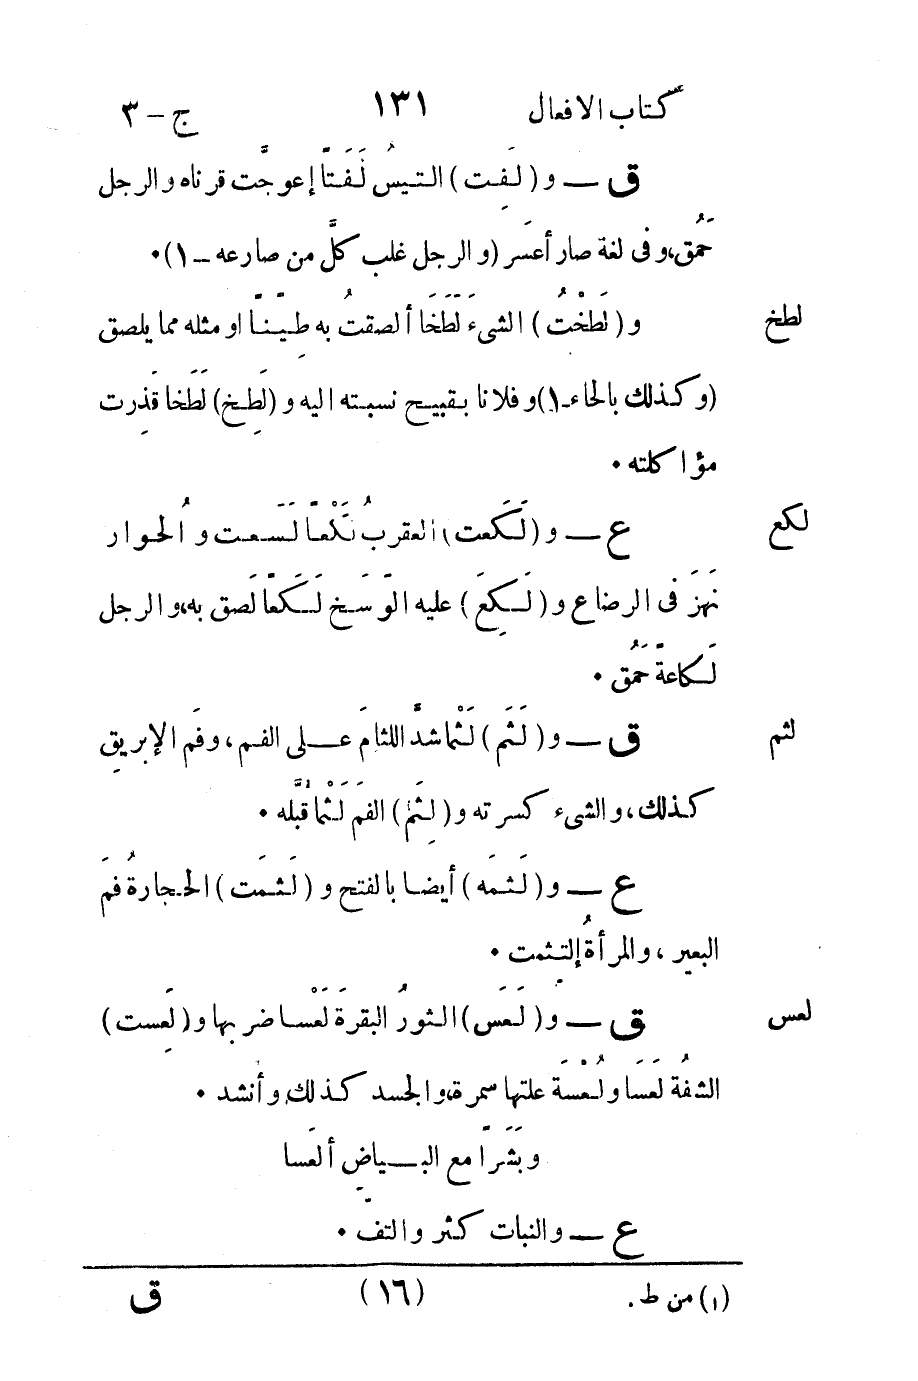 كتاب الافعال ١٣١ ج - ٣
ق — و (لَفِت) التيسُ لَفَتاً إعوجَّت قرناه والرجل
حَمُق، وفى لغة صار أعسَر (والرجل غلب كلَّ من صارعه - ١) •
لطخ و (لَطَخْتُ) الشىءَ لَطَخَا ألصقتُ به طِيناً او مثله مما يلصق
(وكذلك بالحاء - ١) وفلانا بقبيح نسبته اليه و (لَطِخ) لَطَخا قَذِرت
مؤاكلته •
لكع ع — و (لَكَعت) العقربُ لَكْعاً لَسَعت و الحُوار
نَهَزَ فى الرضاع و (لَكِعَ) عليه الوَسَخ لَكَعاً لَصق به، والرجل
لَكاعةً حَمُق •
لثم ق — و (لَثَم) لَثْما شدَّ اللثامَ على الفم، وفَم الإبريق
كذلك، والشىء كسرته و (لثِم) الفمَ لَثْما قَبَّله •
ع — و (لَثَمَه) أيضا بالفتح و (لَثَمَت) الحجارةُ فمَ
البعير، والمرأةُ إلتثمت •
لعس ق — و (لَعَس) الثورُ البقرةَ لَعْسا ضربها و (لَعِست)
الشفةُ لَعَسَا ولُعْسَة علتها سمرة، والجسد كذلك، وأنشد •
وبَشَراً مع البياضِ ألعَسا
ع — والنبات كثر والتفّ •
(١) من ط. (١٦) ق